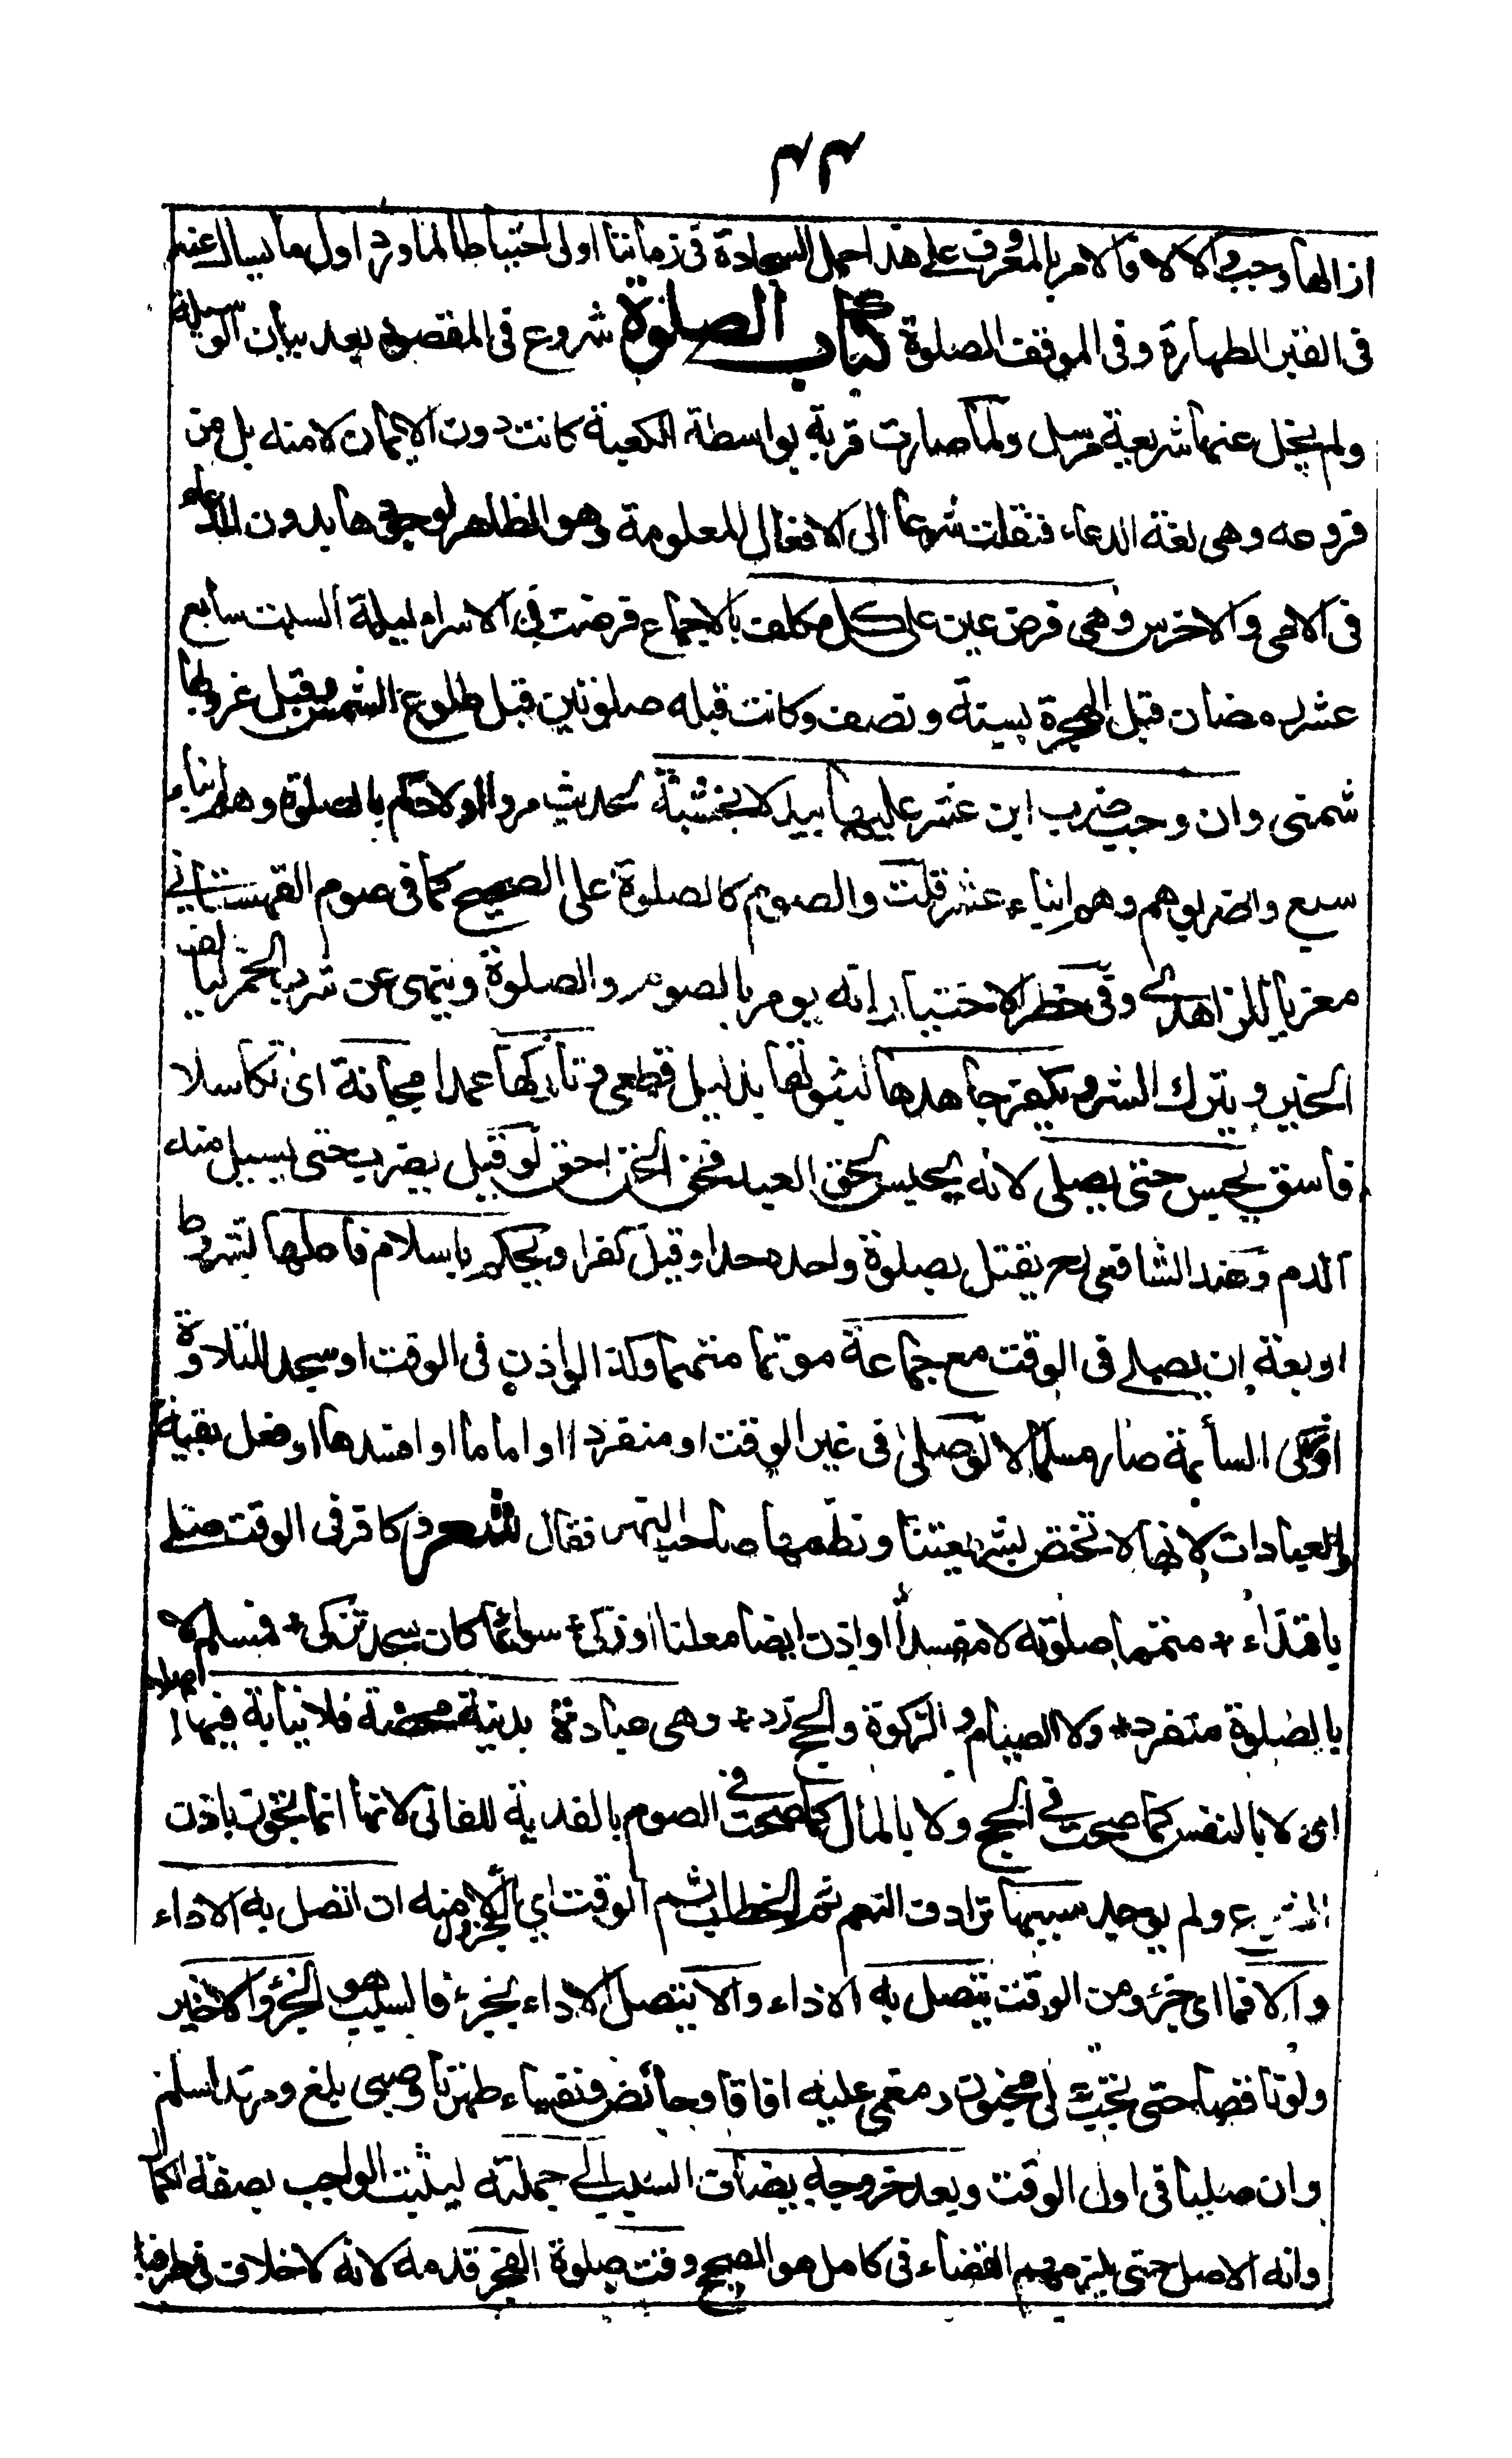 ٣٣
ازالها وجب والا لا فالامر بالمعروف على هذا حمل السجادة في زماننا اولى احتياطا لما ورد اول ما يسال عنه
في القبر الطهارة وفي الموقف الصلوة كتاب الصلوة شروع في المقصود بعد بيان الوسيلة
ولم يخل عنها شريعة مرسل ولما صارت قربة بواسطة الكعبة كانت دون الايمان لا منه بل من
فروعه وهي لغة الدعاء فنقلت شرعا الى الافعال المعلومة وهو الظاهر لوجودها بدون الدعاء
في الامي والاخرس وهي فرض عين على كل مكلف بالاجماع فرضت في الاسراء ليلة السبت سابع
عشر رمضان قبل الهجرة بسنة ونصف وكانت قبله صلوتين قبل طلوع الشمس وقبل غروبها
شمني وان وجب ضرب ابن عشر عليها بيد لا بخشبة لحديث مروا اولادكم بالصلوة وهم ابناء
سبع واضربوهم وهم ابناء عشر قلت والصوم كالصلوة على الصحيح كما في صوم القهستاني
معزيا للزاهدي وفي حظر الاختيار انه يومر بالصوم والصلوة وينهى عن شرب الخمر ليالف
الخير ويترك الشر ويكفر جاحدها لثبوتها بدليل قطعي وتاركها عمدا مجانة اي تكاسلا
فاسق يحبس حتى يصلي لانه يحبس لحق العبد فحق الحق احق وقيل يضرب حتى يسيل منه
الدم وعند الشافعي يقتل بصلوة واحدة حدا وقيل كفرا ويحكم باسلام فاعلها بشروط
اربعة ان يصلي في الوقت مع جماعة موتما متمما وكذا لو اذن في الوقت او سجد للتلاوة
او زكى السائمة صار مسلما لا لو صلى في غير الوقت او منفردا او اماما او افسدها او فعل بقية
العبادات لانها لا تختص بشريعتنا ونظمها صاحب النهر فقال شعر وكافر في الوقت صلى
باقتداء * متمما صلوته لا مفسدا او اذن ايضا معلنا او زكى * سوائما كان سجد تزكى * فمسلم لا
بالصلوة منفرد * ولا الصيام والزكوة والحج زد * وهي عبادة بدنية محضة فلا نيابة فيها اصلا
اي لا بالنفس كما صحت في الحج ولا بالمال كما صحت في الصوم بالفدية للفاني لانها انما تجوز باذن
الشرع ولم يوجد سببها ترادف النعم ثم الخطاب ثم الوقت اي الجزء الاول منه ان اتصل به الاداء
والا فما اي جزء من الوقت يتصل به الاداء والا يتصل الاداء بجزء فالسبب هو الجزء الاخير
ولو ناقصا حتى تجب على مجنون ومغمى عليه افاقا وحائض ونفساء طهرتا وصبي بلغ ومرتد اسلم
وان صليا في اول الوقت وبعد خروجه يضاف السبب الى جملته ليثبت الواجب بصفة الكمال
وانه الاصل حتى يلزمهم القضاء في كامل هو الصحيح وقت صلوة الفجر قدمه لانه لا خلاف في طرفيه